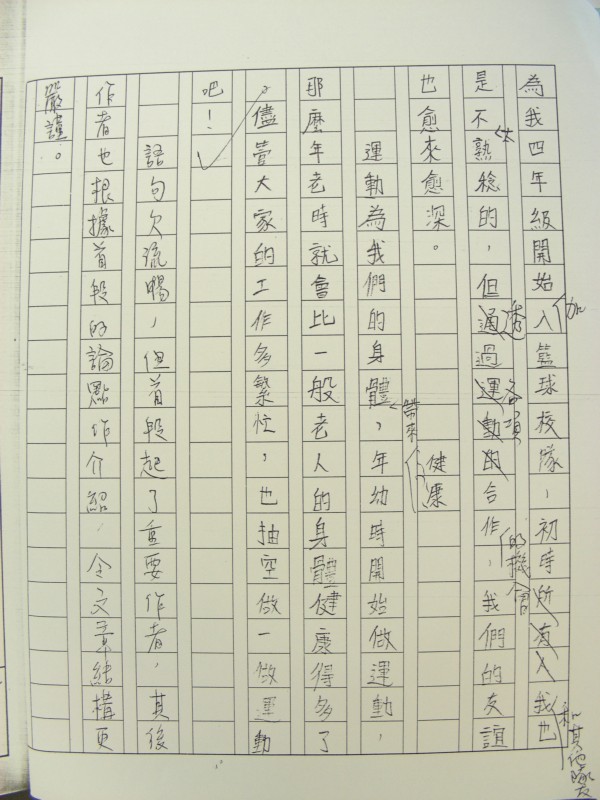 為我四年級開始入籃球校隊，初時所有人我也
加
和其他隊友
是不熟稔的，但通過運動的合作，我們的友誼
太
透
各項
的機會
也愈來愈深。
健康
帶來
運動為我們的身體，年幼時開始做運動，
那麼年老時就會比一般老人的身體健康得多了
。儘管大家的工作多繁忙，也抽空做一做運動
吧！
語句欠流暢，但首段起了重要作者，其後
作者也根據首段的論點作介紹，令文章結構更
嚴謹。